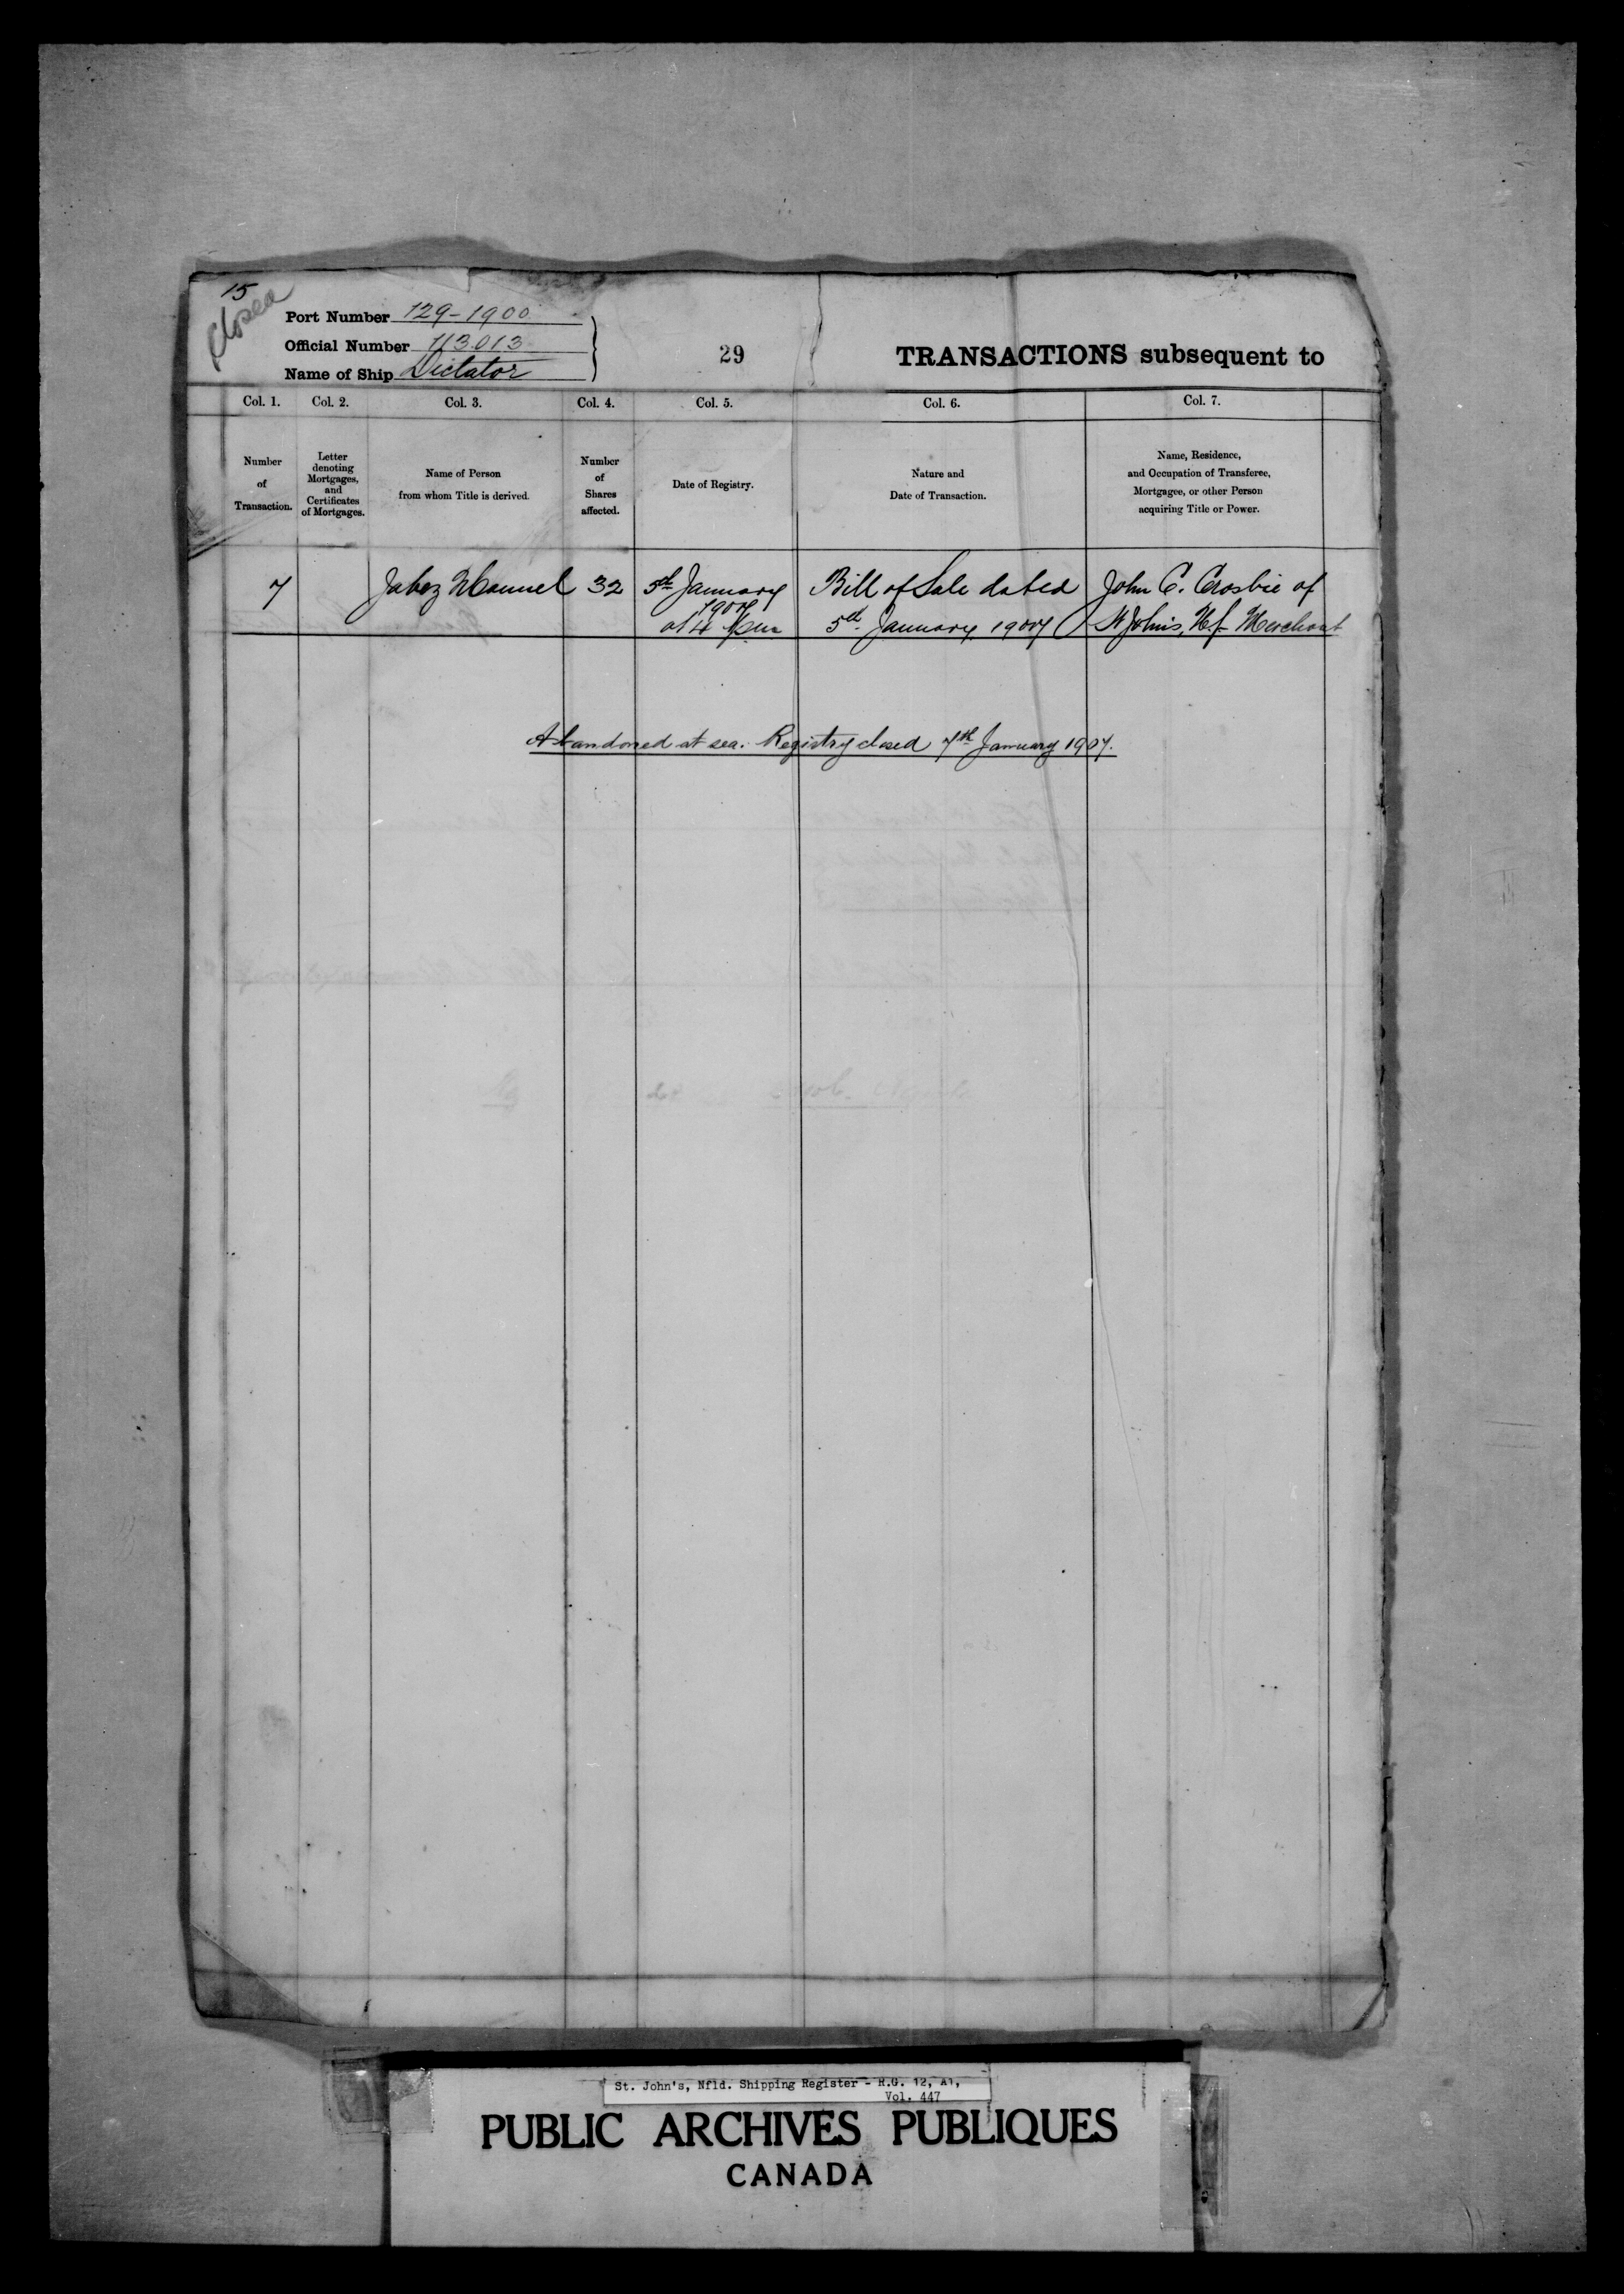 15
Closed
Port Number 129-1900
Official Number 113.013
Name of Ship Dictator
29
TRANSACTIONS subsequent to
Col. 1. Col. 2. Col. 3. Col. 4. Col. 5. Col. 6. Col. 7.
Number
of
Transaction.
Letter
denoting
Mortgages,
and
Certificates
of Mortgages.
Name of Person
from whom Title is derived.
Number
of
Shares
affected.
Date of Registry.
Nature and
Date of Transaction.
Name, Residence,
and Occupation of Transferee,
Mortgagee, or other Person
acquiring Title or Power.
7 Jabez Manuel 32
5th January
1907
at 4 pm
Bill of Sale dated
5th January 1907
John C. Crosbie of
St Johns, Nf. Merchant
Abandoned at sea. Registry closed 7th January 1907.
St. John's, Nfld. Shipping Register - R.G. 12, A1,
Vol. 447
PUBLIC ARCHIVES PUBLIQUES
CANADA